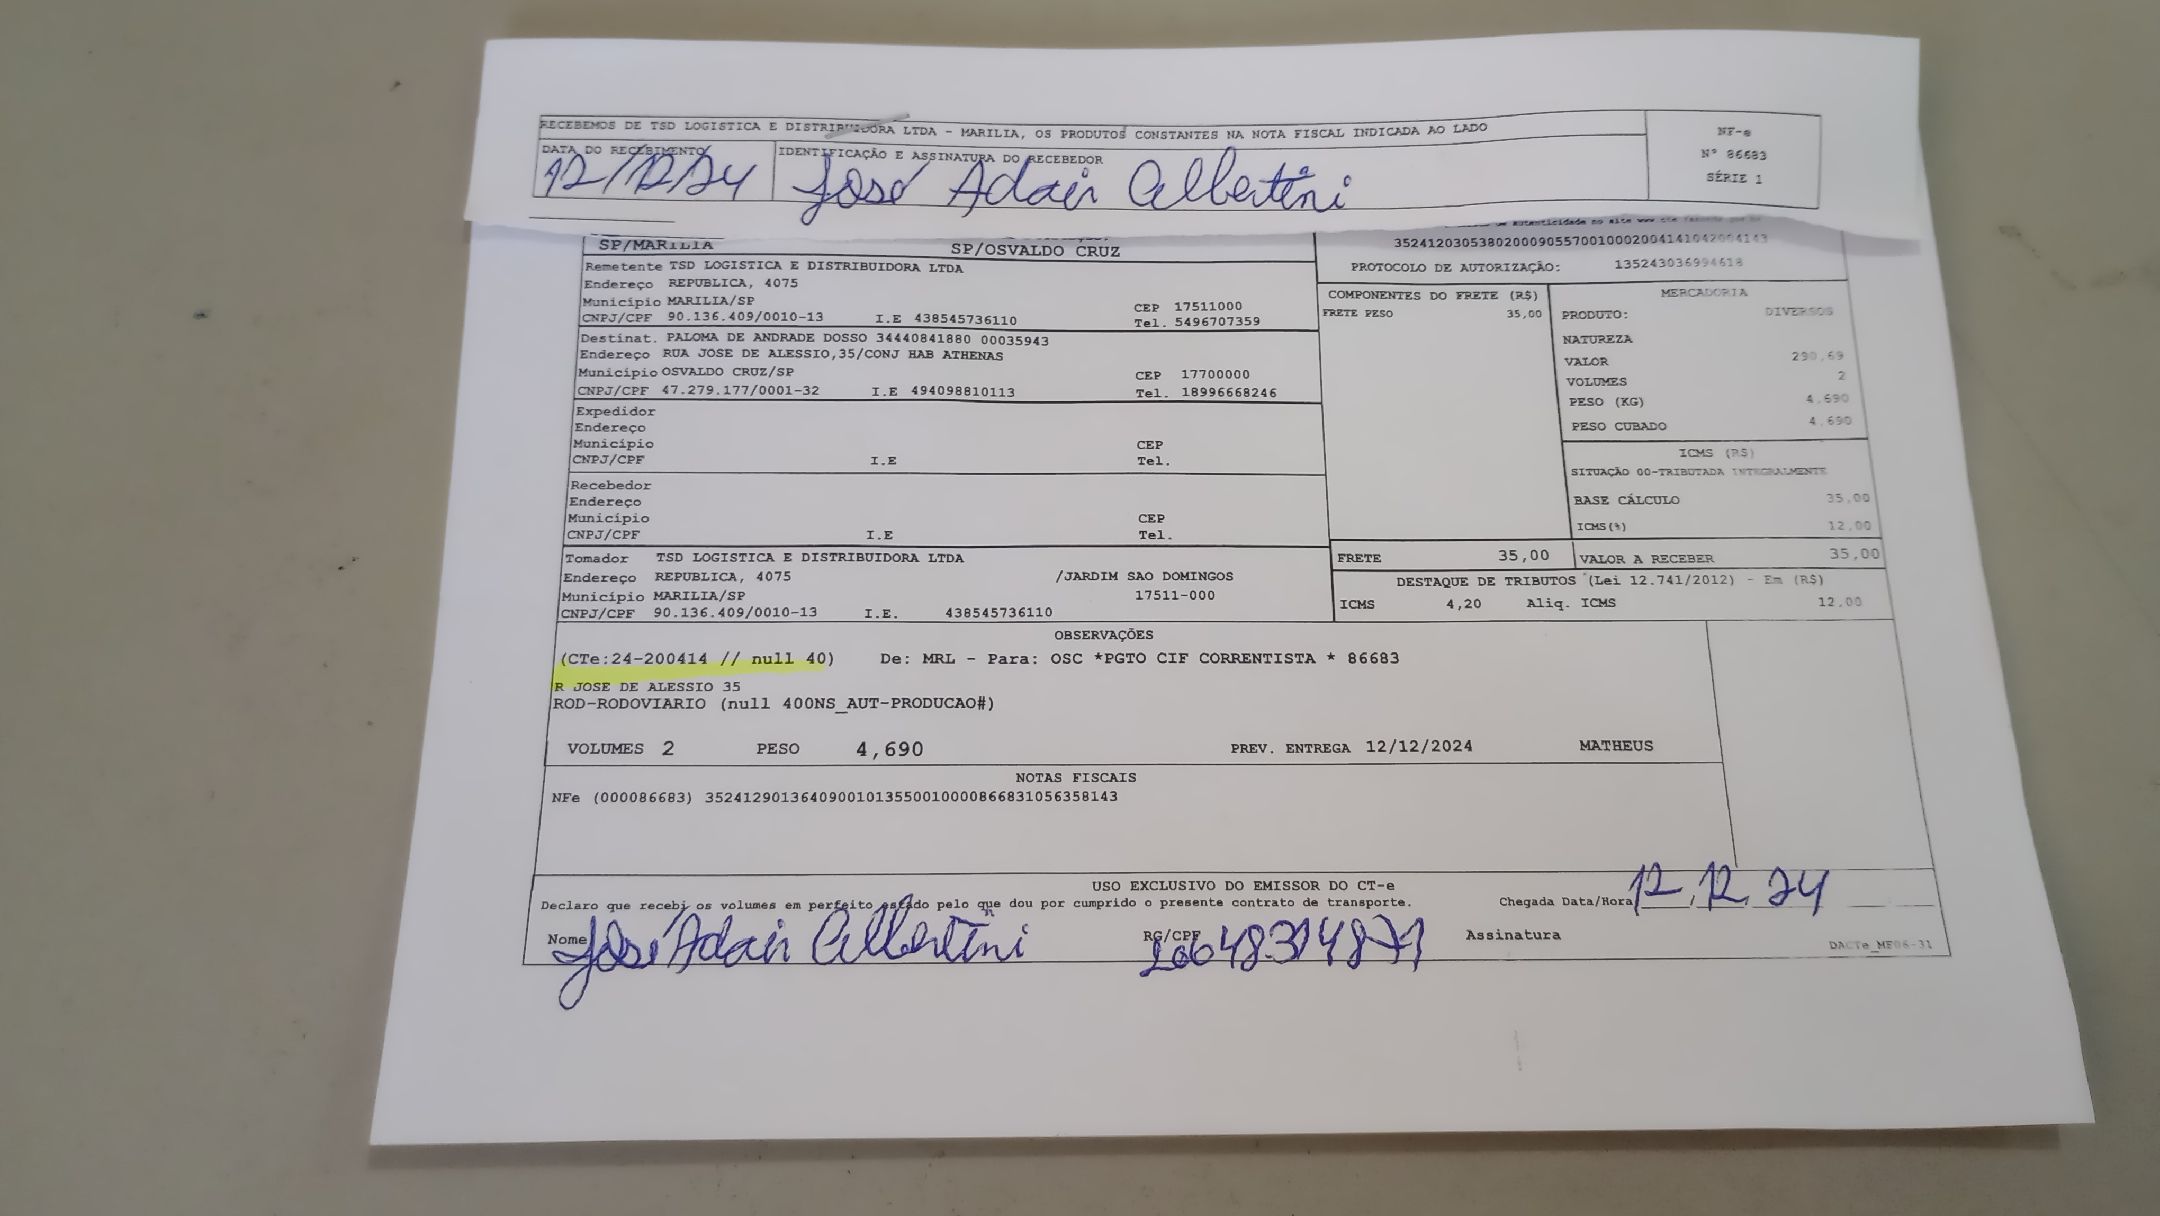 RECEBEMOS DE TSD LOGISTICA E DISTRIBUIDORA LTDA - MARILIA, OS PRODUTOS CONSTANTES NA NOTA FISCAL INDICADA AO LADO
NF-e
Nº 86683
SÉRIE 1
DATA DO RECEBIMENTO
IDENTIFICAÇÃO E ASSINATURA DO RECEBEDOR
12/12/24
José Adair Albertini
SP/MARILIA SP/OSVALDO CRUZ
35241203053802000905570010002004141042004143
PROTOCOLO DE AUTORIZAÇÃO: 135243036994618
Remetente TSD LOGISTICA E DISTRIBUIDORA LTDA
Endereço REPUBLICA, 4075
Município MARILIA/SP CEP 17511000
CNPJ/CPF 90.136.409/0010-13 I.E 438545736110 Tel. 5496707359
Destinat. PALOMA DE ANDRADE DOSSO 34440841880 00035943
Endereço RUA JOSE DE ALESSIO,35/CONJ HAB ATHENAS
Município OSVALDO CRUZ/SP CEP 17700000
CNPJ/CPF 47.279.177/0001-32 I.E 494098810113 Tel. 18996668246
Expedidor
Endereço
Município CEP
CNPJ/CPF I.E Tel.
Recebedor
Endereço
Município CEP
CNPJ/CPF I.E Tel.
Tomador TSD LOGISTICA E DISTRIBUIDORA LTDA
Endereço REPUBLICA, 4075 /JARDIM SAO DOMINGOS
Município MARILIA/SP 17511-000
CNPJ/CPF 90.136.409/0010-13 I.E. 438545736110
COMPONENTES DO FRETE (R$)
FRETE PESO 35,00
MERCADORIA
PRODUTO: DIVERSOS
NATUREZA
VALOR 290,69
VOLUMES 2
PESO (KG) 4.690
PESO CUBADO 4,690
ICMS (R$)
SITUAÇÃO 00-TRIBUTADA INTEGRALMENTE
BASE CÁLCULO 35,00
ICMS(%) 12,00
FRETE 35,00 VALOR A RECEBER 35,00
DESTAQUE DE TRIBUTOS (Lei 12.741/2012) - Em (R$)
ICMS 4,20 Aliq. ICMS 12,00
OBSERVAÇÕES
(CTe:24-200414 // null 40) De: MRL - Para: OSC *PGTO CIF CORRENTISTA * 86683
R JOSE DE ALESSIO 35
ROD-RODOVIARIO (null 400NS_AUT-PRODUCAO#)
VOLUMES 2 PESO 4,690 PREV. ENTREGA 12/12/2024 MATHEUS
NOTAS FISCAIS
NFe (000086683) 35241290136409001013550010000866831056358143
USO EXCLUSIVO DO EMISSOR DO CT-e
Declaro que recebi os volumes em perfeito estado pelo que dou por cumprido o presente contrato de transporte. Chegada Data/Hora 12,12,24
Nome José Adair Albertini RG/CPF Assinatura
DACTe_ME06-31